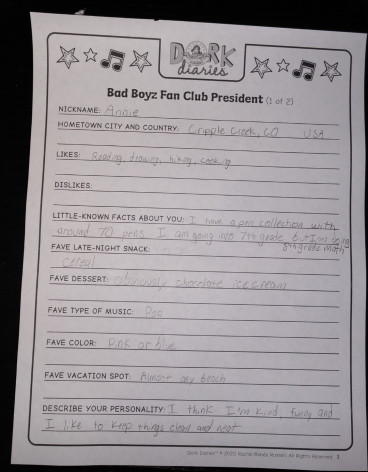 DORK
diaries
Bad Boyz Fan Club President (1 of 2)
NICKNAME: Annie
HOMETOWN CITY AND COUNTRY: Cripple Creek, CO USA
LIKES: Reading, drawing, hiking, cooking
DISLIKES:
LITTLE-KNOWN FACTS ABOUT YOU: I have a pen collection with
around 70 pens. I am going into 7th grade, but I'm doing
8th grade math
FAVE LATE-NIGHT SNACK:
cereal
FAVE DESSERT: Obviously chocolate ice cream
FAVE TYPE OF MUSIC: Pop
FAVE COLOR: Pink or blue
FAVE VACATION SPOT: Almost any beach
DESCRIBE YOUR PERSONALITY: I think I'm kind, funny and
I like to keep things clean and neat
Dork Diaries™ © 2020 Rachel Renée Russell. All Rights Reserved. 3